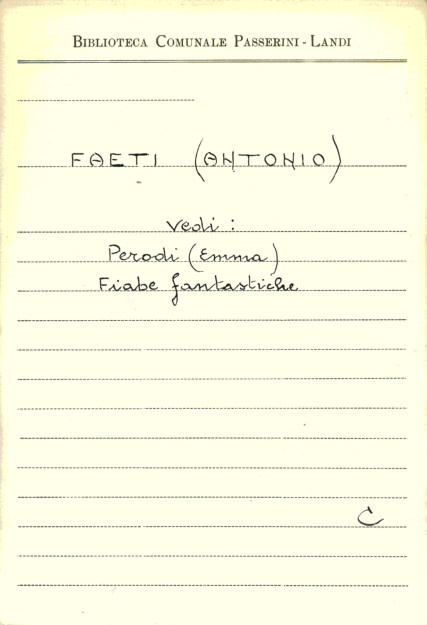 BIBLIOTECA COMUNALE PASSERINI - LANDI
FAETI (ANTONIO)
Vedi :
Perodi (Emma)
Fiabe fantastiche
C